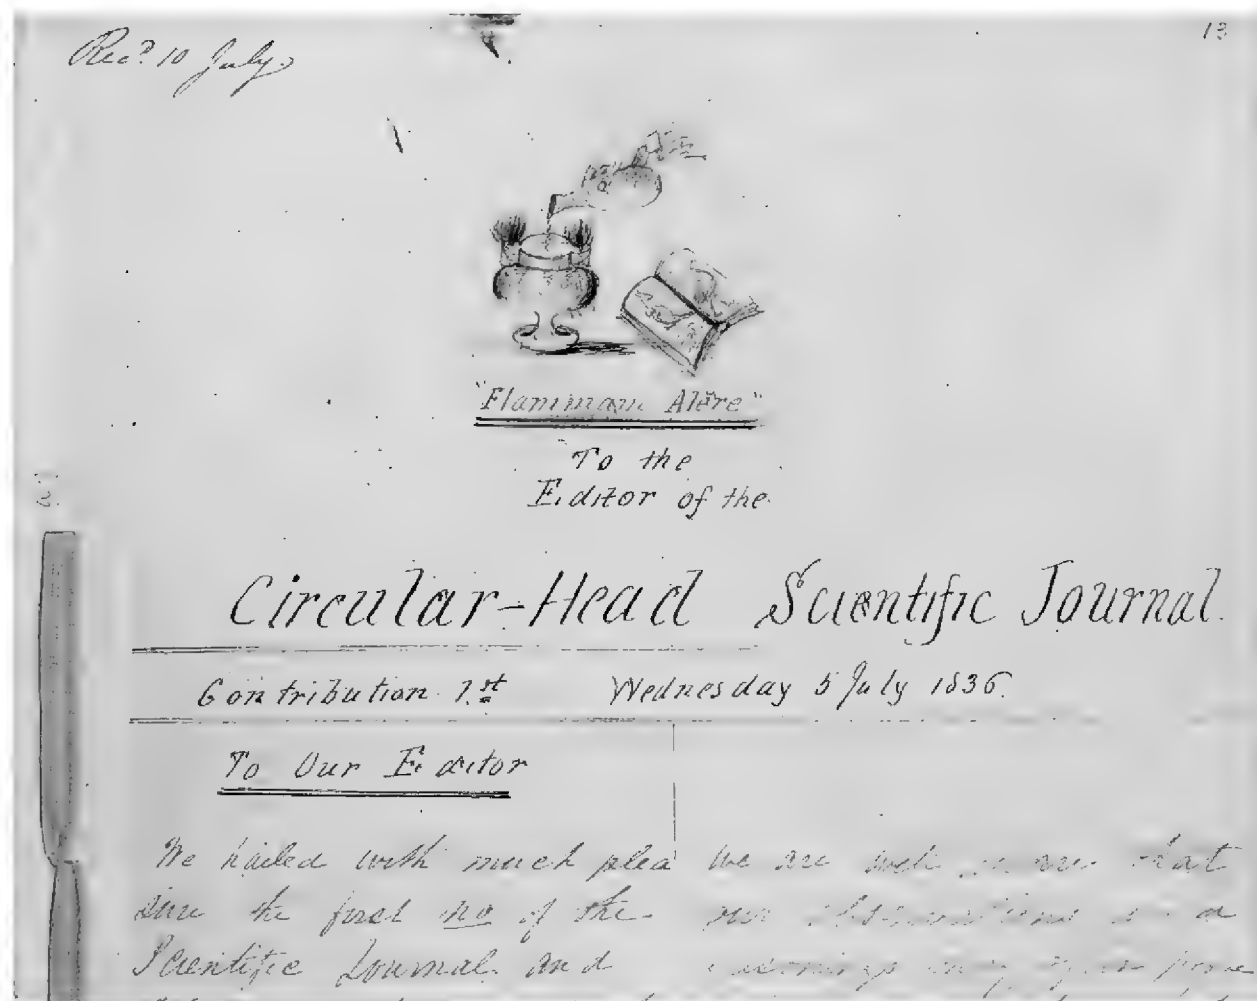 Recd 10 July.
13
"Flammam Alere"
To the
Editor of the
Circular-Head Scientific Journal.
Contribution 1st Wednesday 5 July 1836.
To Our Editor
We hailed with much plea
sure the first no of the
Scientific Journal and
we are well aware that
our observations a
may prove